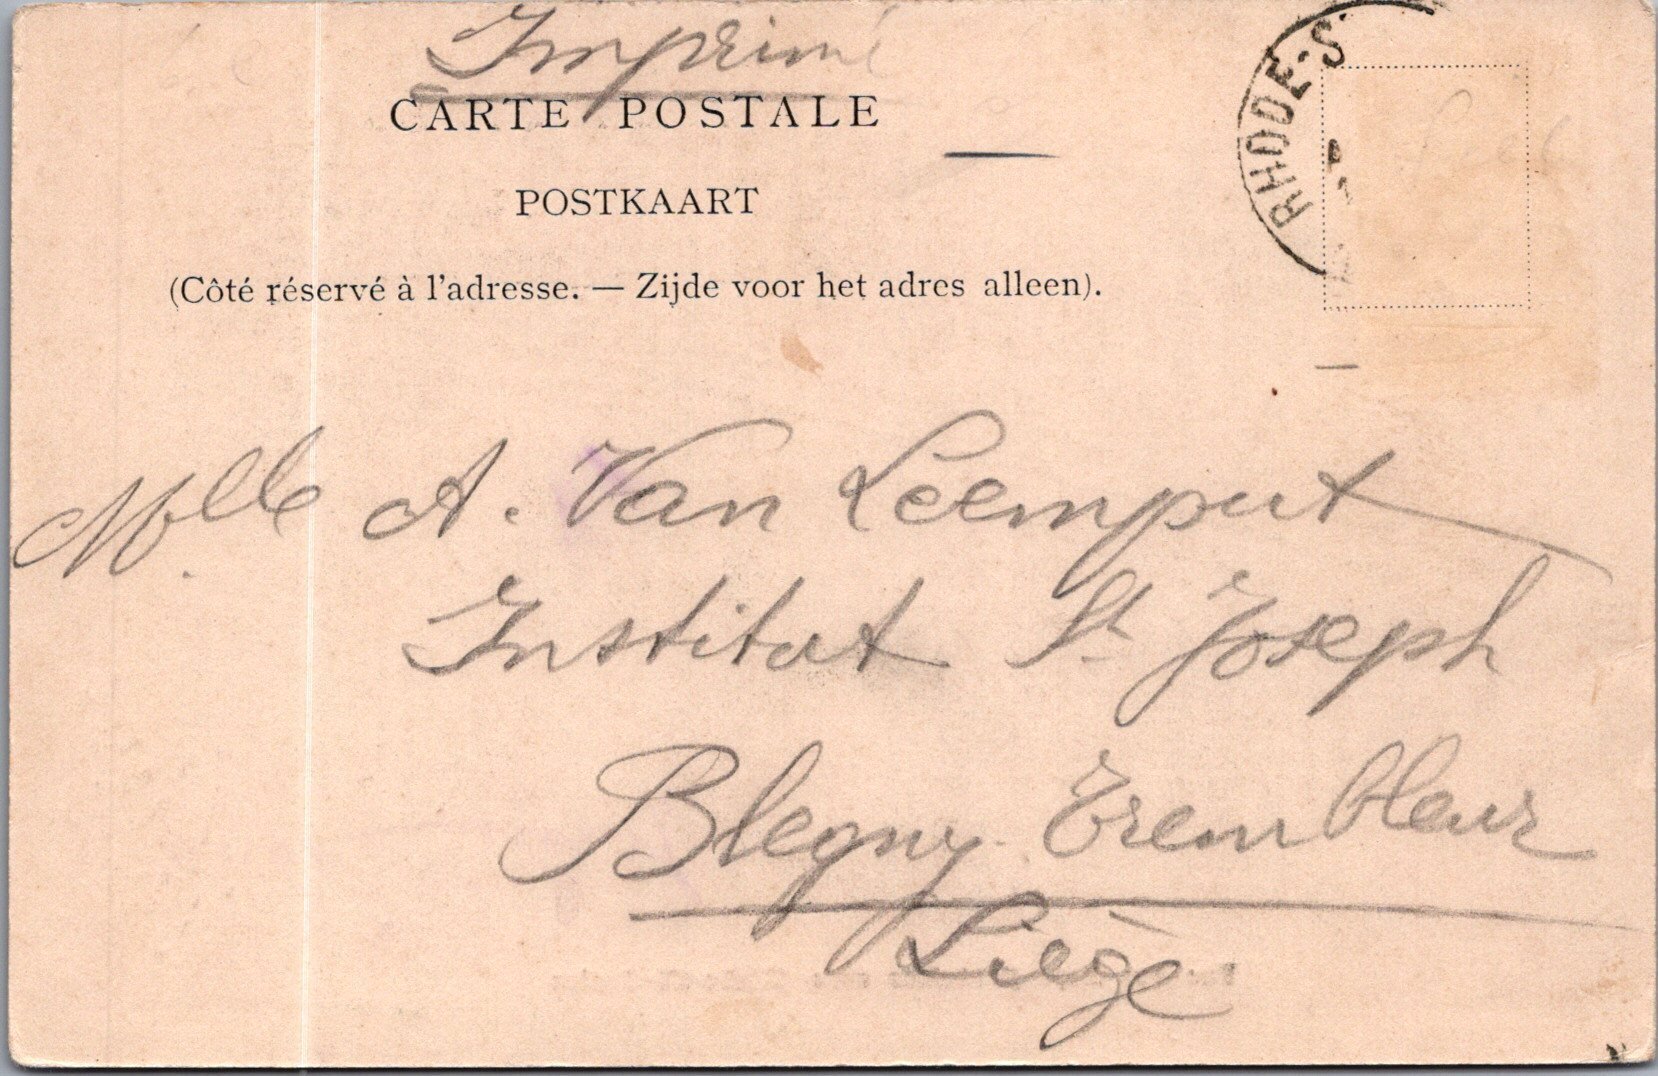 Imprimé
CARTE POSTALE
POSTKAART
(Côté réservé à l'adresse. — Zijde voor het adres alleen).
RHODE-S
Mlle A. Van Leemput
Institut St Joseph
Blegny-Trembleur
Liège